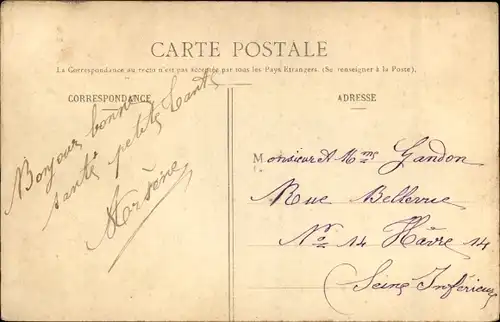 CARTE POSTALE
La Correspondance au recto n'est pas acceptée par tous les Pays Etrangers. (Se renseigner à la Poste).
CORRESPONDANCE
ADRESSE
Bonjour bonne
santé petite
Arsène
Monsieur et Mme Gandon
Rue Bellevue
No 14 Hâvre 14
(Seine Inférieure